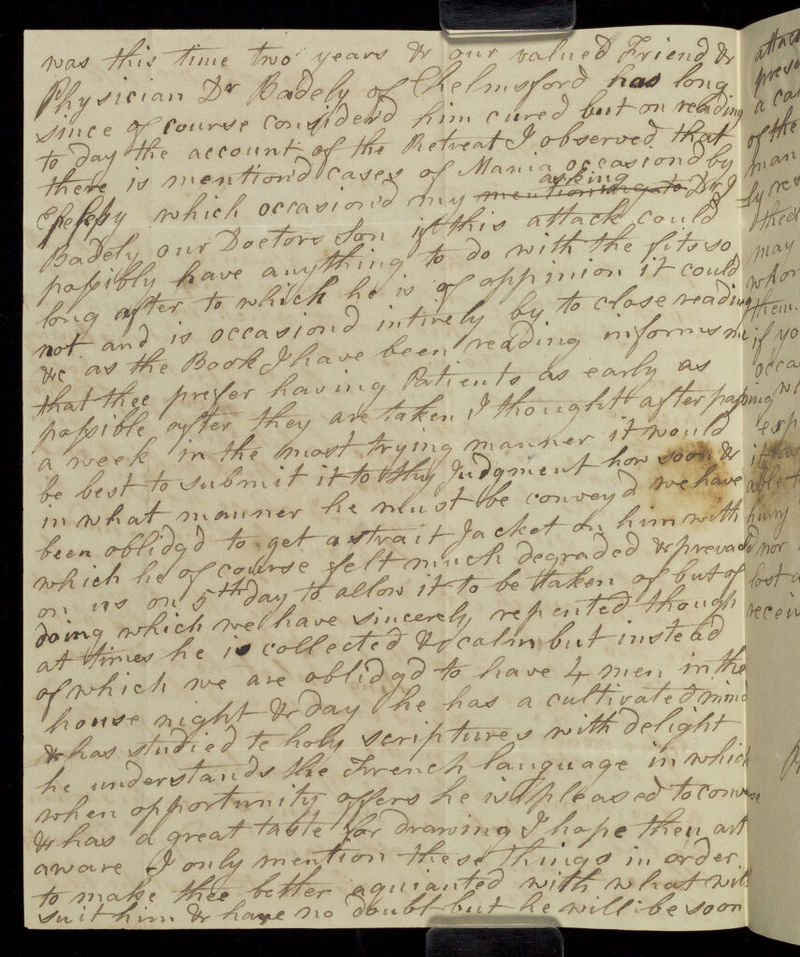 was this time two years & our valued Friend &
Physician Dr Badely of Chelmsford has long
since of course considerd him cured but on reading
to day the account of the Retreat I observed that
there is mentiond cases of Mania occasiond by
Epelepsy which occasiond my mentioning to asking Dr J
Badely our Doctors Son if this attack could
possibly have anything to do with the fits so
long after to which he is of oppinion it could
not and is occasiond intirely by to close reading
&c as the Book I have been reading informs me
that thee prefer having Patients as early as
possible after they are taken I thought after passing
a week in the most trying manner it would
be best to submit it to thy Judgment how soon &
in what manner he must be convey'd we have
been oblidg'd to get a strait Jacket on him with
which he of course felt much degraded & prevaild
on us on 5th day to allow it to be taken of but of
doing which we have sincerely repented though
at times he is collected & calm but instead
of which we are oblidgd to have 4 men in the
house night & day he has a cultivated mind
& has studied te holy scriptures with delight
he understands the French language in which
when opportunity offers he is pleased to converse
& has a great taste for drawing I hope then art
aware I only mention these things in order
to make thee better aquianted with what will
suit him & have no doubt but he will be soon
attac
prese
a ca
of the
man
ly res
thee
may
whor
them
if yo
occa
exp
able t
hurry
nor
lost a
receiv